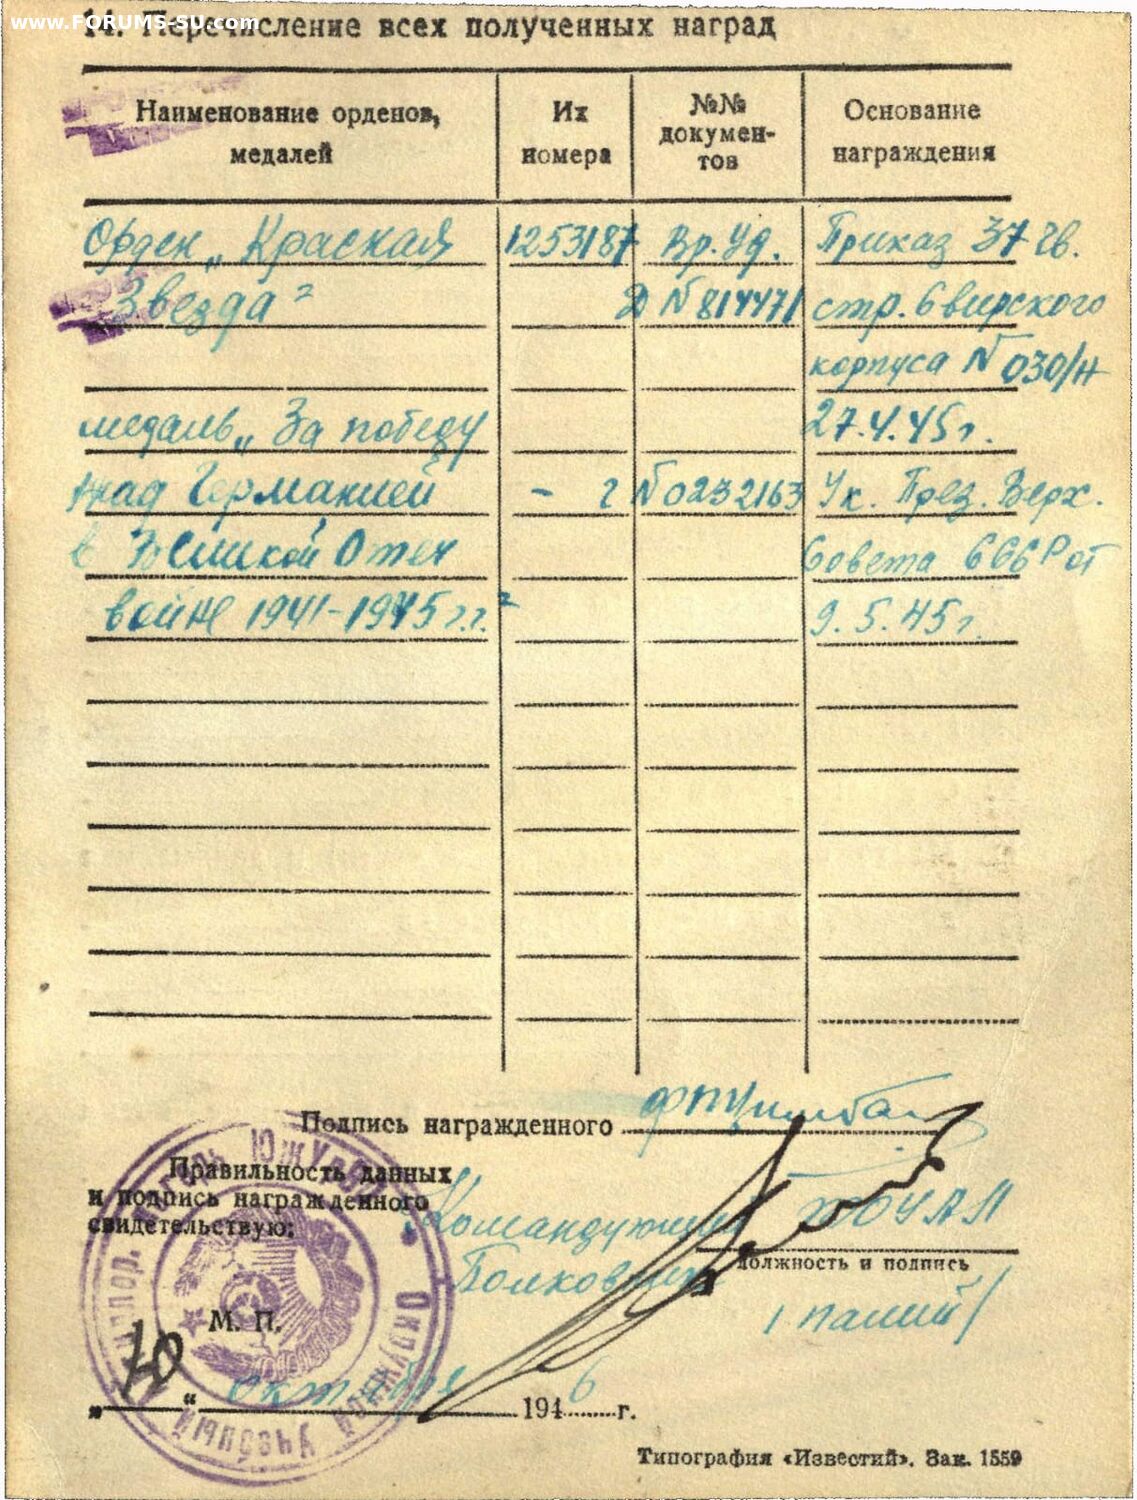 www.FORUMS-SU.com
14. Перечисление всех полученных наград
Наименование орденов, медалей
Их номера
№№ докумен-тов
Основание награждения
Орден „Красная 1253187 Вр. Уд. Приказ 37 гв.
Звезда" Д № 814471 стр. Свирского
корпуса № 030/н
медаль „За победу 27.4.45 г.
над Германией – г №0232163 Ук. През. Верх.
в Великой Отеч Совета СССР от
войне 1941-1945 г.г." 9.5.45 г.
Подпись награжденного
Правильность данных
и подпись награжденного
свидетельствую:
Командующий
Полковник
должность и подпись
/ Палий /
М. П.
„10" октября 1946 г.
Окружной Учебный
Типография «Известий». Зак. 1559